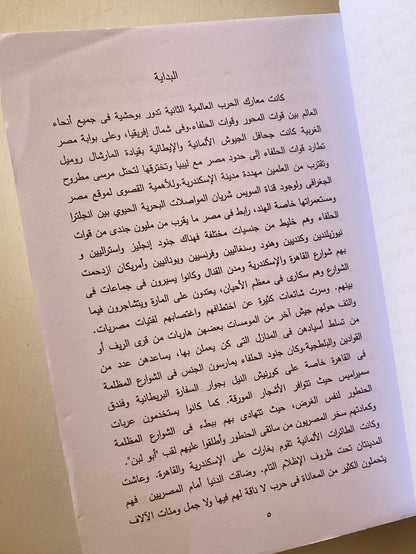 البداية
كانت معارك الحرب العالمية الثانية تدور بوحشية فى جميع أنحاء
العالم بين قوات المحور وقوات الحلفاء.وفى شمال إفريقيا، وعلى بوابة مصر
الغربية كانت جحافل الجيوش الألمانية والإيطالية بقيادة المارشال روميل
تطارد قوات الحلفاء إلى حدود مصر مع ليبيا وتخترقها لتحتل مرسى مطروح
وتقترب من العلمين مهددة مدينة الإسكندرية.وللأهمية القصوى لموقع مصر
الجغرافى ولوجود قناة السويس شريان المواصلات البحرية الحيوى بين انجلترا
ومستعمراتها خاصة الهند، رابط فى مصر ما يقرب من مليون جندى من قوات
الحلفاء وهم خليط من جنسيات مختلفة فهناك جنود إنجليز واستراليين و
نيوزيلنديين وكنديين وهنود وسنغاليين وفرنسيين ويونانيين وأمريكان ازدحمت
بهم شوارع القاهرة والإسكندرية ومدن القتال وكانوا يسيرون فى جماعات فى
الشوارع وهم سكارى فى معظم الأحيان، يعتدون على المارة ويتشاجرون فيما
بينهم. وسرت شائعات كثيرة عن اختطافهم واغتصابهم لفتيات مصريات.
والتف حولهم جيش آخر من المومسات بعضهن هاربات من قرى الريف أو
من تسلط أسيادهن فى المنازل التى كن يعملن بها، يساعدهن عدد من
القوادين والبلطجية.وكان جنود الحلفاء يمارسون الجنس فى الشوارع المظلمة
فى القاهرة خاصة على كورنيش النيل بجوار السفارة البريطانية وفندق
سميراميس حيث تتوافر الأشجار المورقة. كما كانوا يستخدمون عربات
الحنطور لنفس الغرض، حيث تتهادى بهم ببطء فى الشوارع المظلمة
وكعادتهم سخر المصريون من سائقى الحنطور وأطلقوا عليهم لقب "أبو لبن".
وكانت الطائرات الألمانية تقوم بغارات على الإسكندرية والقاهرة. وعاشت
المدينتان تحت ظروف الإظلام التام. وضاقت الدنيا أمام المصريين فهم
يتحملون الكثير من المعاناة فى حرب لا ناقة لهم فيها ولا جمل ومئات الآلاف
٥